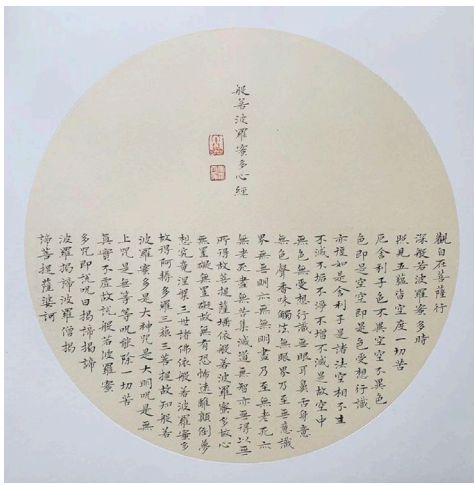 般若波羅蜜多心經
觀自在菩薩行
深般若波羅蜜多時
照見五蘊皆空度一切苦
厄舍利子色不異空空不異色
色即是空空即是色受想行識
亦復如是舍利子是諸法空相不生
不滅不垢不淨不增不減是故空中
無色無受想行識無眼耳鼻舌身意
無色聲香味觸法無眼界乃至無意識
界無無明亦無無明盡乃至無老死亦
無老死盡無苦集滅道無智亦無得以無
所得故菩提薩埵依般若波羅蜜多故心
無罣礙無罣礙故無有恐怖遠離顛倒夢
想究竟涅槃三世諸佛依般若波羅蜜多
故得阿耨多羅三藐三菩提故知般若
波羅蜜多是大神咒是大明咒是無
上咒是無等等咒能除一切苦
真實不虛故說般若波羅蜜
多咒即說咒曰揭諦揭諦
波羅揭諦波羅僧揭
諦菩提薩婆訶